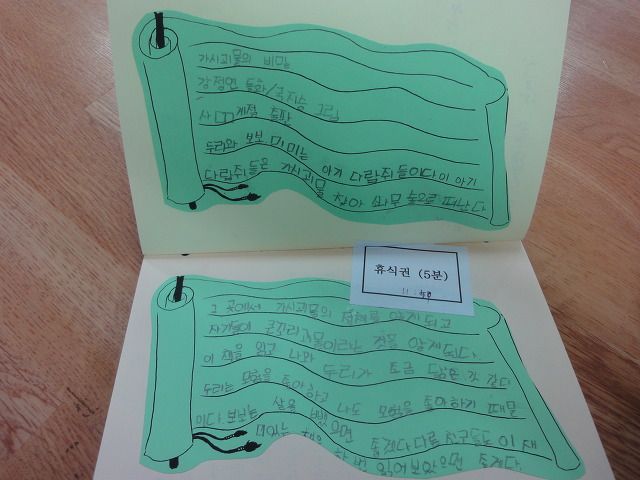 가시괴물의 비밀
강정연 동화/국지승 그림
사계절 출판
두리와 보보 미미는 아기 다람쥐들이다 이 아기
다람쥐들은 가시괴물 찾아 소나무 숲으로 떠난다
휴식권 (5분)
그 곳에서 가시괴물의 정체를 알게 되고
자기들이 괴물이라는 것을 알게된다
이 책을 읽고 나와 두리가 조금 닮은 것 같다
두리는 모험을 좋아하고 나도 모험을 좋아하기 때문
이다 보보는
좋겠다 다른 친구들도 이 재
미있는 책을 한 번 읽어보았으면 좋겠다.